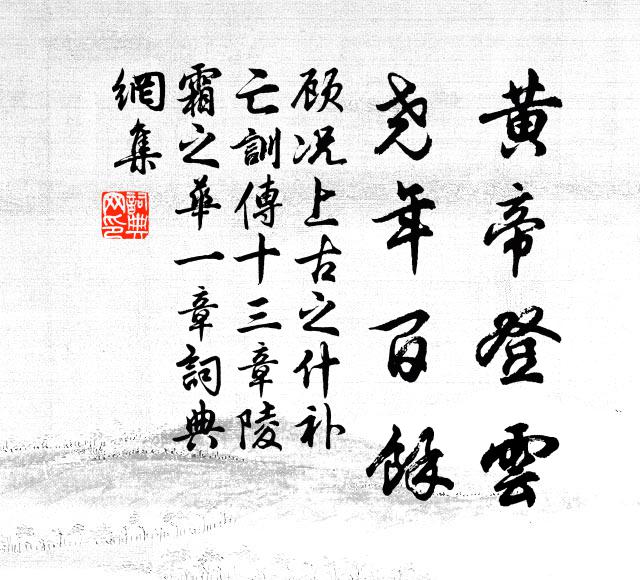 黄帝登雲
尧年百餘
顾况上古之什补
亡訓傳十三章陵
霜之華一章詞典
網集
詞典
网印